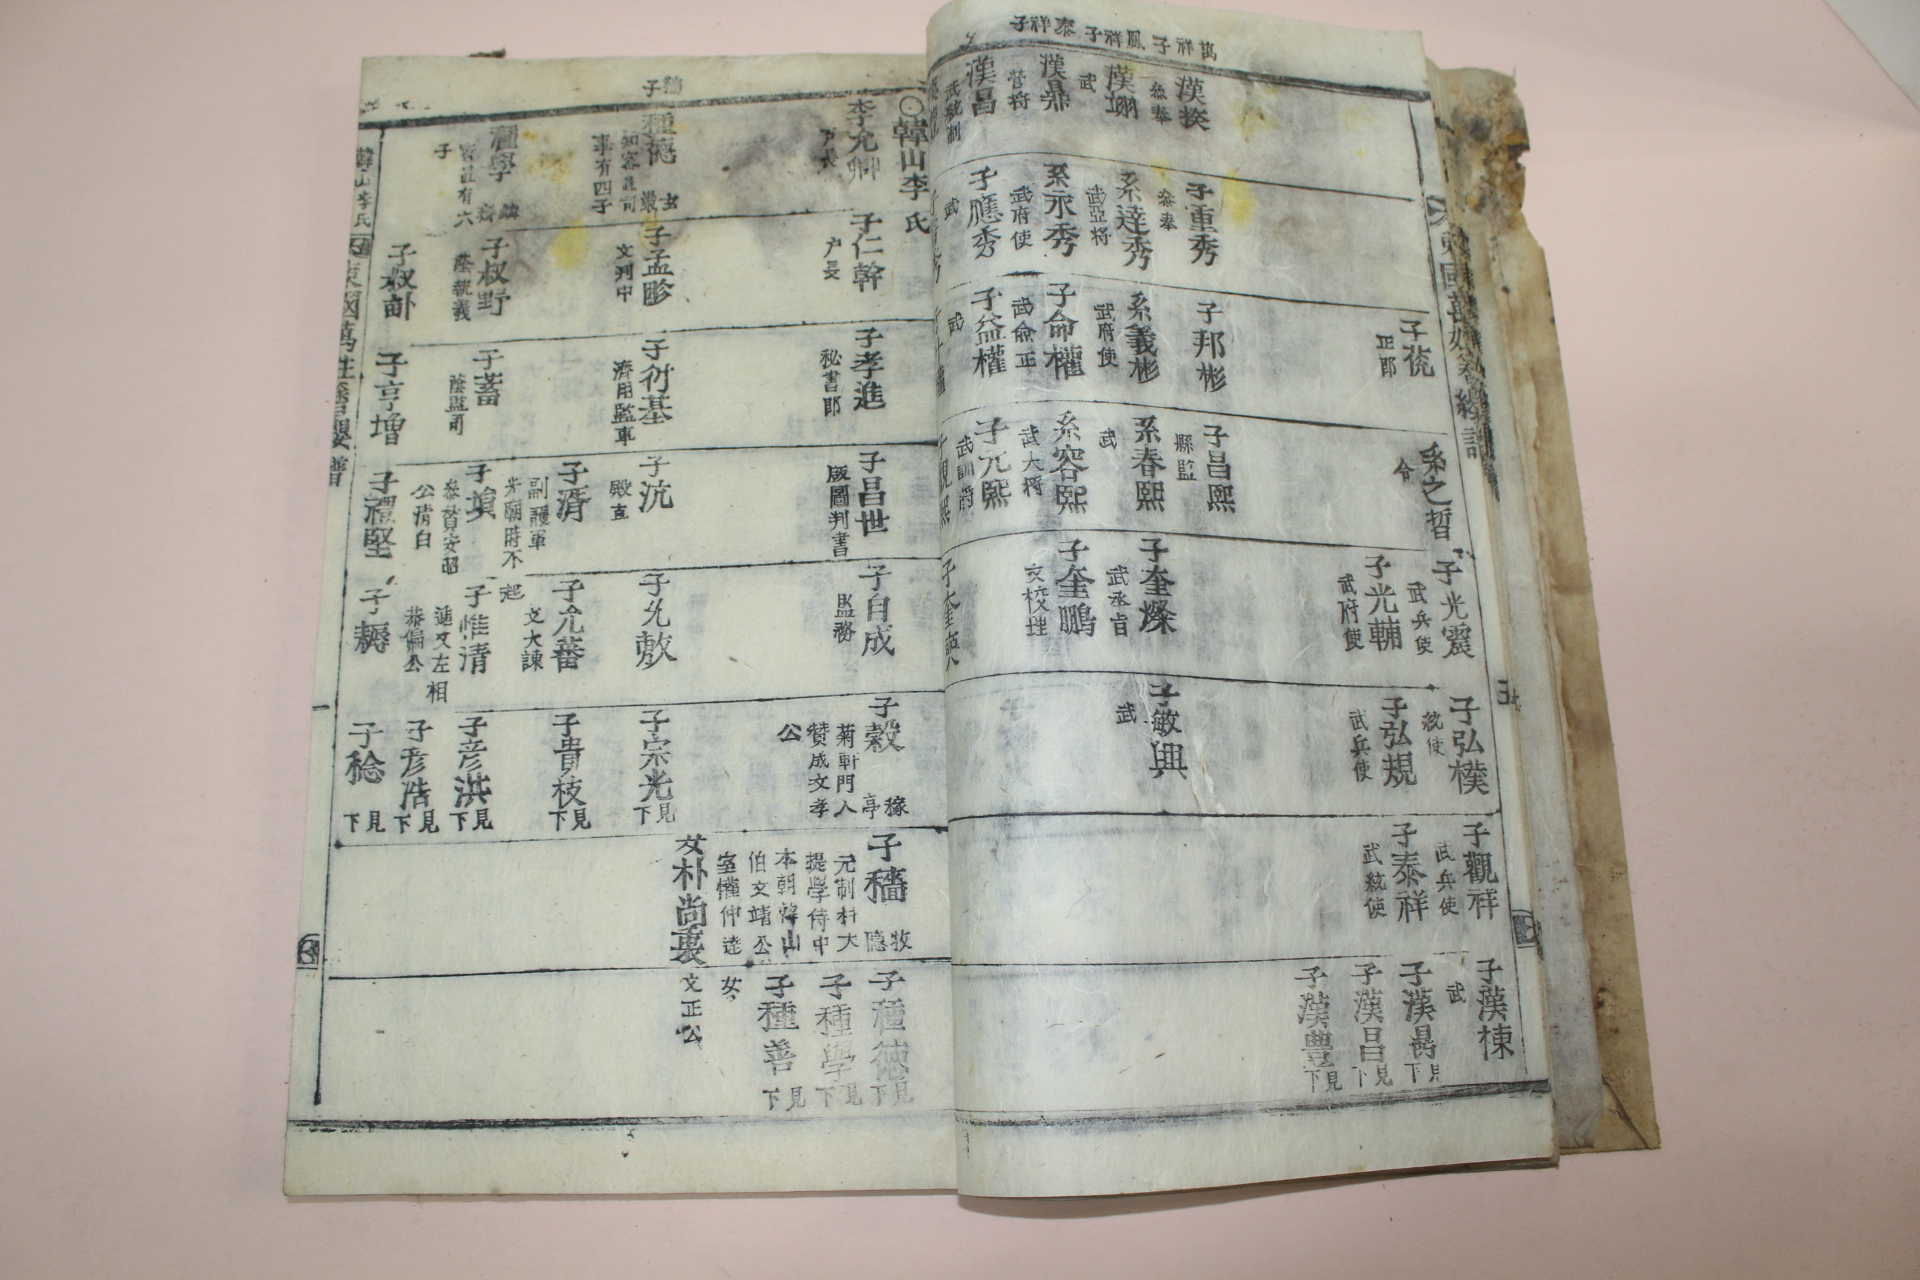 萬祥子 鳳祥子 泰祥子
子侃
正郎
系之哲
令
子光震
武兵使
子光輔
武府使
子弘樸
統使
子弘規
武兵使
子觀祥
武兵使
子泰祥
武統使
子漢棟
武
子漢昜 見下
子漢昌 見下
子漢豊 見下
漢揆
參奉
漢翊
武
漢鼎
營將
漢昌
武統制
子重秀
參奉
系達秀
武亞將
系永秀
武府使
子應秀
武
子邦彬
系義彬
武府使
子命權
武僉正
子益權
武
子昌熙
縣監
系春熙
武
系容熙
武大將
子元熙
武訓將
子奎燦
武承旨
子奎鵬
文校理
子敏興
武
穡子
韓山李氏
李允卿
戶長
子仁幹
戶長
子孝進
秘書郎
子昌世
版圖判書
子自成
監務
子穀 稼亭
菊軒門人
贊成文孝
公
子穡 牧隱
元制科大
提學侍中
本朝韓山
伯文靖公
室懽仲達
女
女朴尚衷
文正公
子種德 見下
子種學 見下
子種善 見下
種德
知密直司
事有四子
子孟畛
文判中
子衍基
濟用監事
子沆
殿直
子允敷
子宗光 見下
子湑
副護軍
子允蕃
文大諫
子貴枝 見下
種學 麟齋
密直有六
子
子叔野
蔭執義
子蓄
蔭監司
子塤
光廟時不
起
參贊安昭
公清白
子惟清
逌叉左相
恭偏公
子彦洪 見下
子彦浩 見下
子叔畝
子亨增
子禮堅
子耨
子稔 見下
韓山李氏
東國萬姓簪纓譜